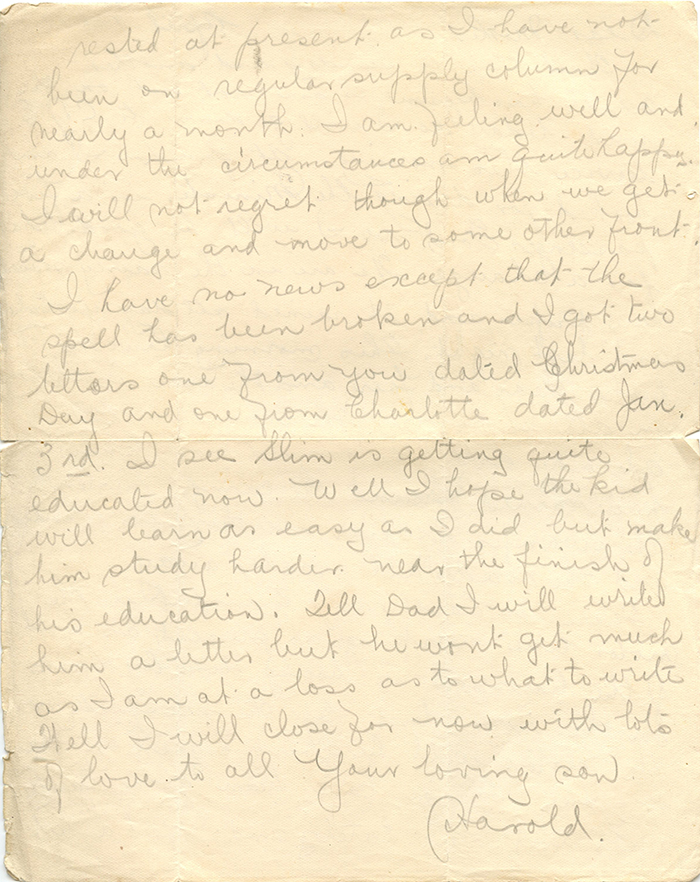 rested at present as I have not
been on regular supply column for
nearly a month. I am feeling well and
under the circumstances am quite happy.
I will not regret though when we get
a change and move to some other front.
I have no news except that the
spell has been broken and I got two
letters one from you dated Christmas
Day and one from Charlotte dated Jan.
3rd. I see Slim is getting quite
educated now. Well I hope the kid
will learn as easy as I did but make
him study harder near the finish of
his education. Tell Dad I will write
him a letter but he wont get much
as I am at a loss as to what to write
Well I will close for now with lots
of love to all Your loving son
Harold.